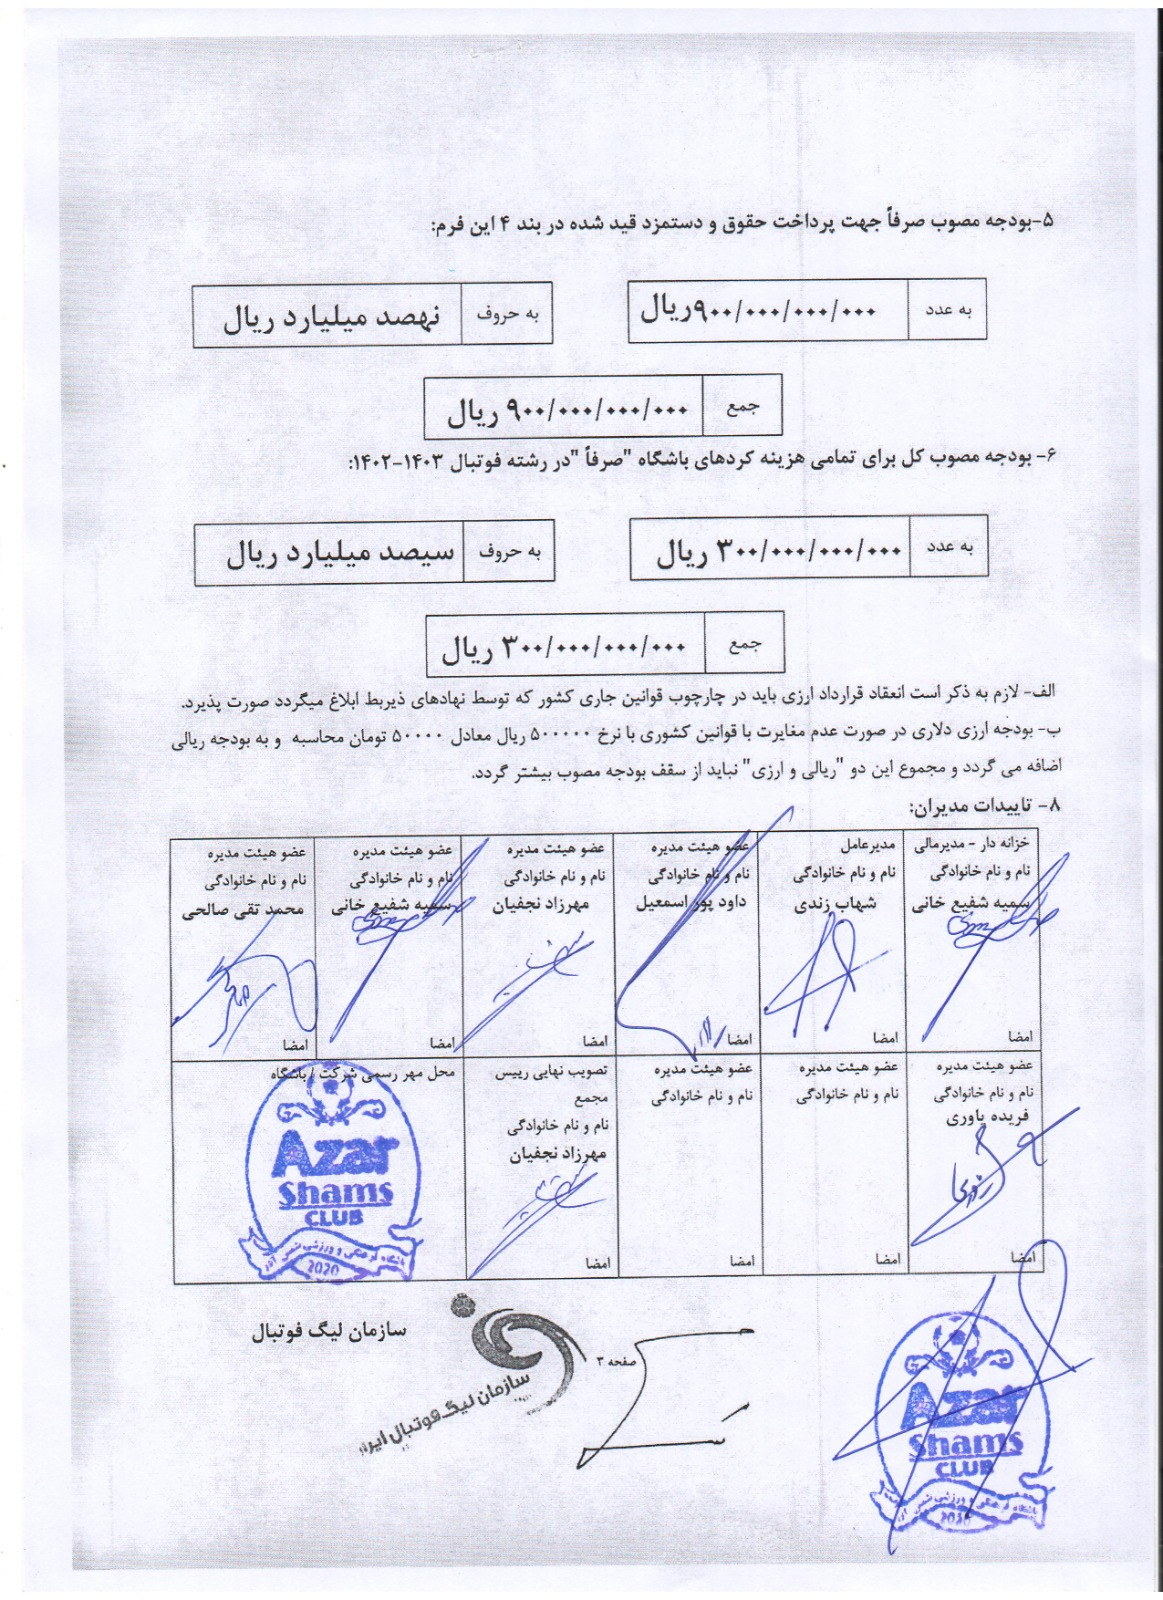 ۵-بودجه مصوب صرفاً جهت پرداخت حقوق و دستمزد قید شده در بند ۴ این فرم:
به عدد ۹۰۰/۰۰۰/۰۰۰/۰۰۰ریال به حروف نهصد میلیارد ریال
جمع ۹۰۰/۰۰۰/۰۰۰/۰۰۰ ریال
۶- بودجه مصوب کل برای تمامی هزینه کردهای باشگاه "صرفاً "در رشته فوتبال ۱۴۰۳-۱۴۰۲:
به عدد ۳۰۰/۰۰۰/۰۰۰/۰۰۰ ریال به حروف سیصد میلیارد ریال
جمع ۳۰۰/۰۰۰/۰۰۰/۰۰۰ ریال
الف- لازم به ذکر است انعقاد قرارداد ارزی باید در چارچوب قوانین جاری کشور که توسط نهادهای ذیربط ابلاغ میگردد صورت پذیرد.
ب- بودجه ارزی دلاری در صورت عدم مغایرت با قوانین کشوری با نرخ ۵۰۰۰۰۰ ریال معادل ۵۰۰۰۰ تومان محاسبه و به بودجه ریالی
اضافه می گردد و مجموع این دو "ریالی و ارزی" نباید از سقف بودجه مصوب بیشتر گردد.
۸- تاییدات مدیران:
خزانه دار - مدیرمالی
نام و نام خانوادگی
سمیه شفیع خانی
امضا
مدیرعامل
نام و نام خانوادگی
شهاب زندی
امضا
عضو هیئت مدیره
نام و نام خانوادگی
داود پور اسمعیل
امضا
عضو هیئت مدیره
نام و نام خانوادگی
مهرزاد نجفیان
امضا
عضو هیئت مدیره
نام و نام خانوادگی
سمیه شفیع خانی
امضا
عضو هیئت مدیره
نام و نام خانوادگی
محمد تقی صالحی
امضا
عضو هیئت مدیره
نام و نام خانوادگی
فریده یاوری
امضا
عضو هیئت مدیره
نام و نام خانوادگی
امضا
عضو هیئت مدیره
نام و نام خانوادگی
امضا
تصویب نهایی رییس
مجمع
نام و نام خانوادگی
مهرزاد نجفیان
امضا
محل مهر رسمی شرکت / باشگاه
Azar
Shams
CLUB
باشگاه فرهنگی و ورزشی شمس آذر
2020
سازمان لیگ فوتبال
صفحه ۳
سازمان لیگ فوتبال ایران
Azar
Shams
CLUB
باشگاه فرهنگی و ورزشی شمس آذر
2020